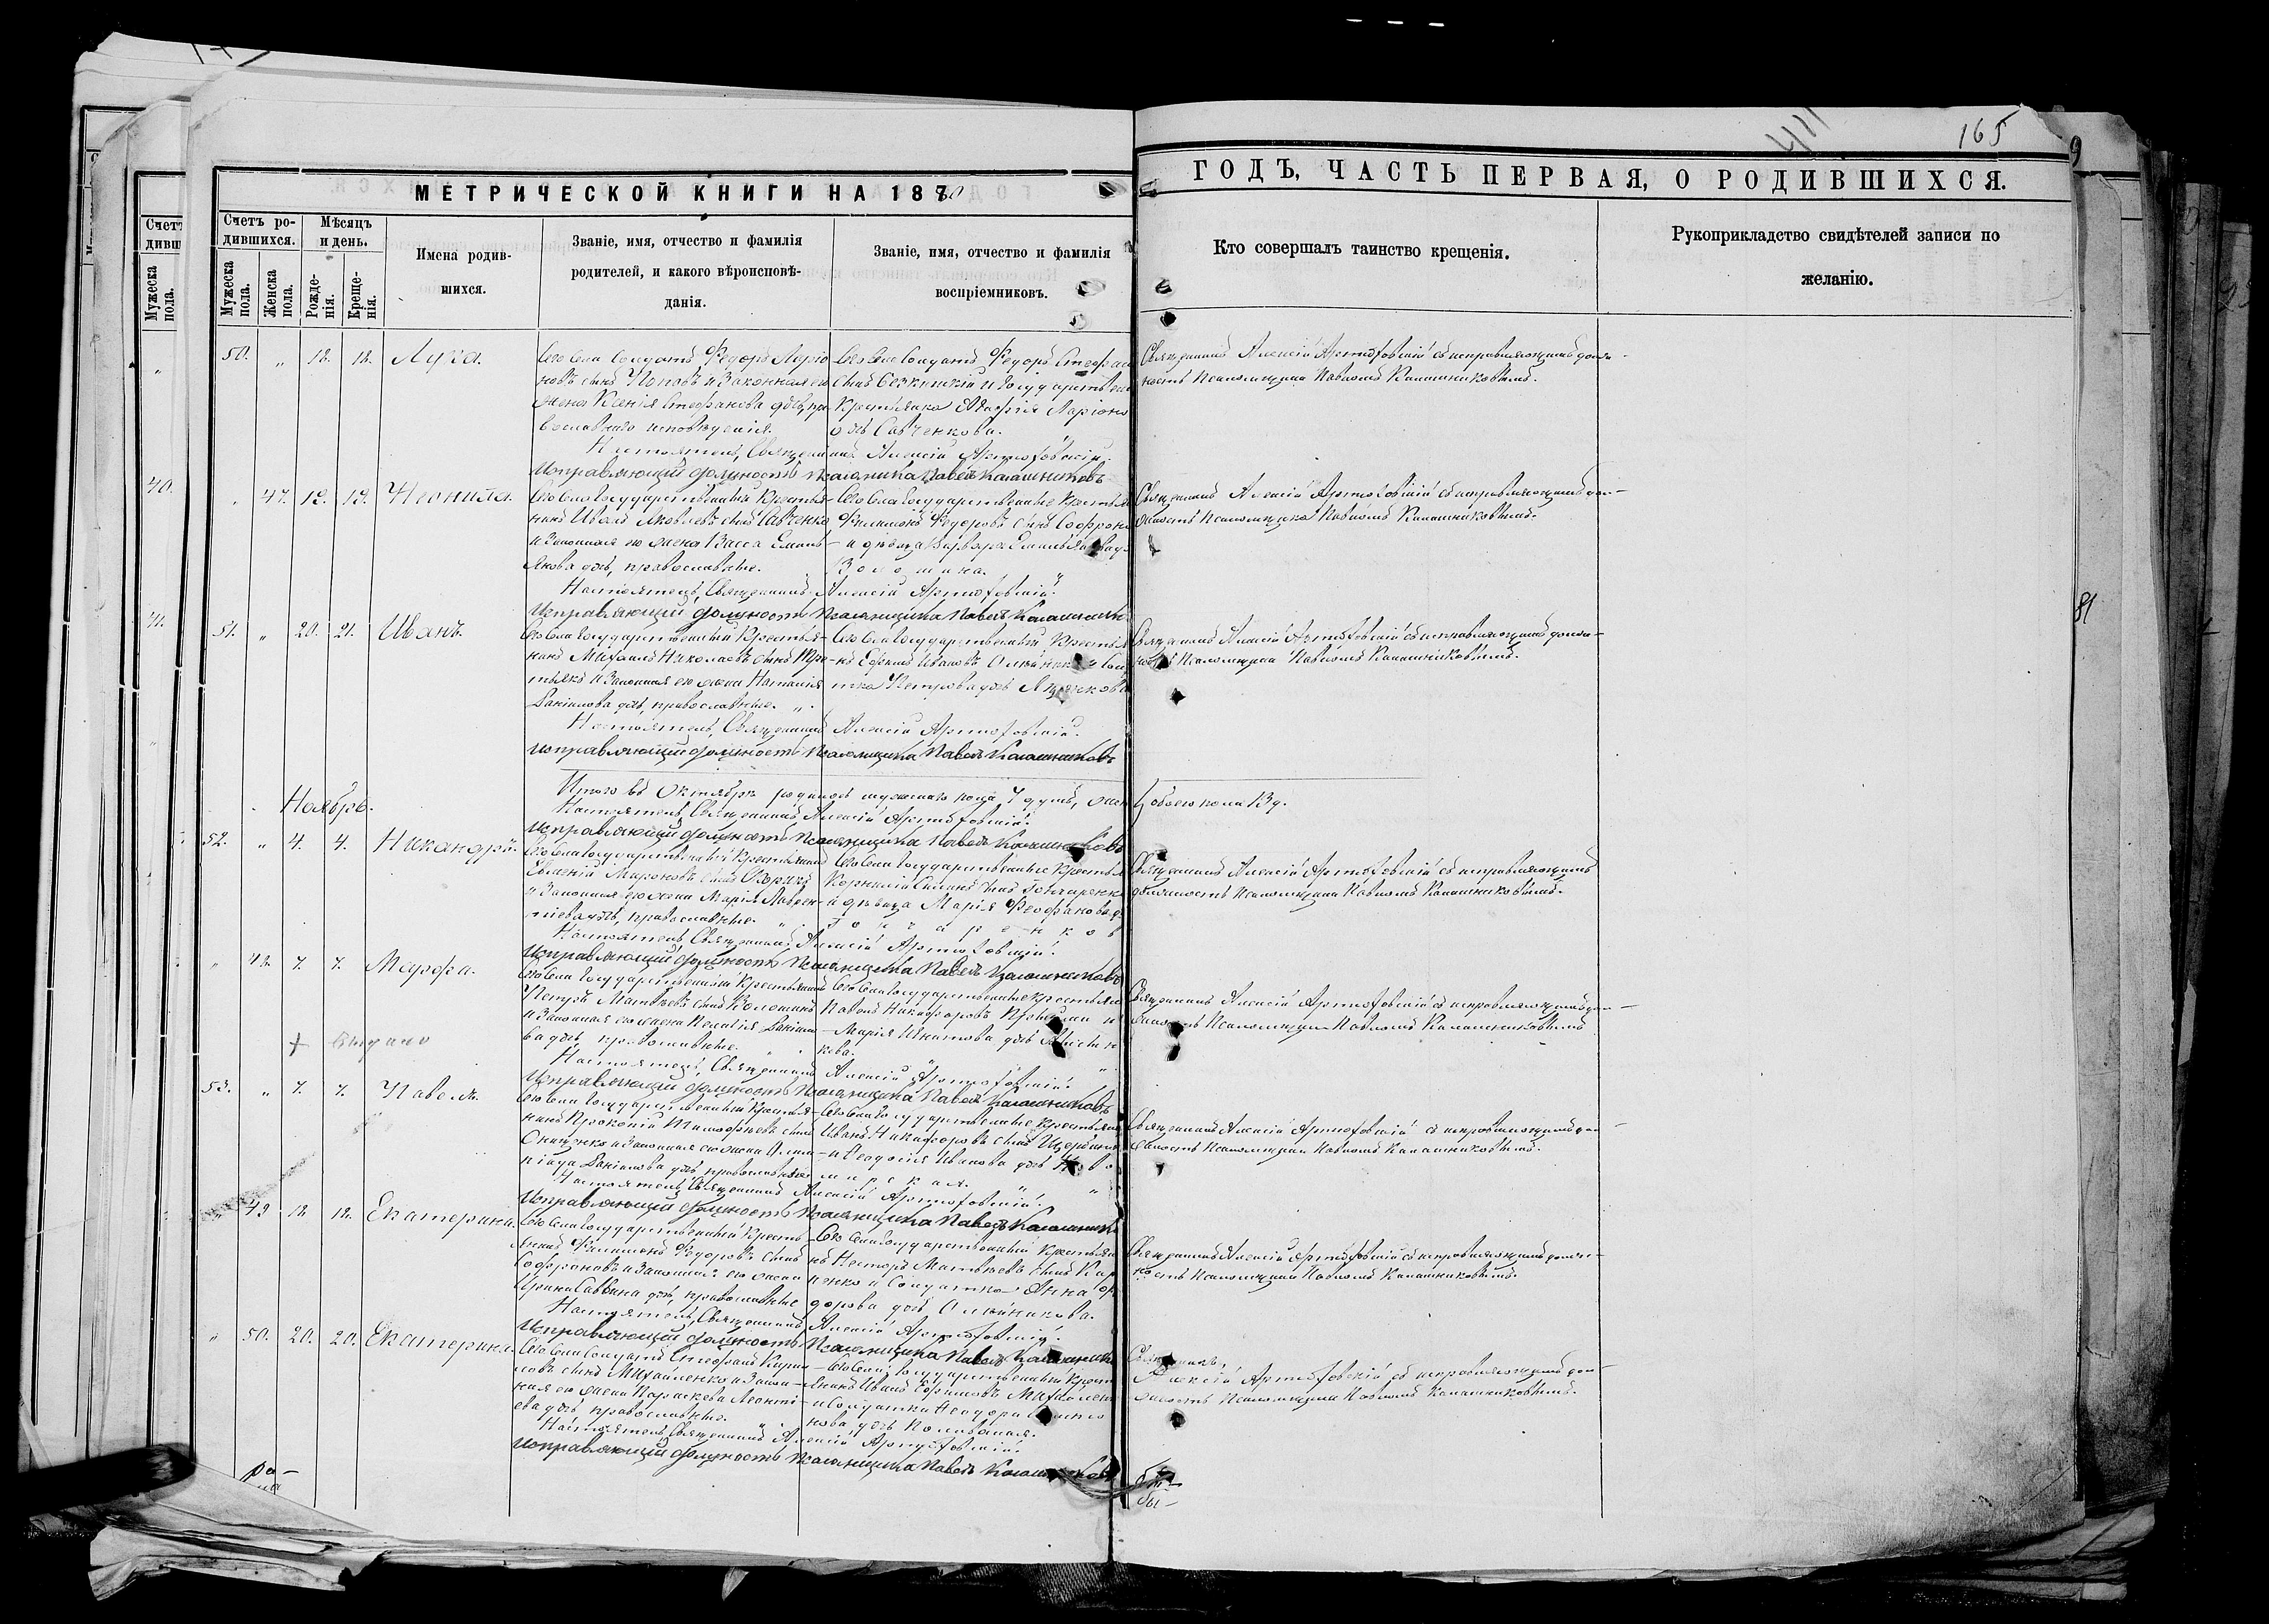 165
МЕТРИЧЕСКОЙ КНИГИ НА 1870
ГОДЪ, ЧАСТЬ ПЕРВАЯ, О РОДИВШИХСЯ.
Счетъ ро-
дившихся.
Мужеска
пола.
Женска
пола.
Мѣсяцъ
и день.
Рожде-
нія.
Креще-
нія.
Имена родив-
шихся.
Званіе, имя, отчество и фамилія
родителей, и какого вѣроисповѣ-
данія.
Званіе, имя, отчество и фамилія
воспріемниковъ.
Кто совершалъ таинство крещенія.
Рукоприкладство свидѣтелей записи по
желанію.
50. " 12. 12. Лука.
Сего Села Солдатъ Федоръ Ларіо
новъ сынъ Поповъ и законная его
жена Ксенія Стефанова дочь, пра
вославнаго исповѣданія.
Сего Села Солдатъ Федоръ Стефан
сынъ и Государствен
Крестьянка Агафія Ларіоно
дочь Савченкова.
Священникъ Алексій Артюховскій съ исправляющимъ долж-
ность Псаломщика Павломъ Калашниковымъ.
Настоятель, Священникъ Алексій Артюховскій.
Исправляющій должность Псаломщика Павелъ Калашниковъ
" 47. 12. 12. Неонила.
Сего Села Государственный Крестья-
нинъ Иванъ Яковлевъ сынъ Савченко
и законная его жена Васса Емиль-
янова дочь, православные.
Сего Села Государственные Крестьян
Филимонъ Федоровъ сынъ Софрон
и дѣвица Варвара Емильянова д
Волошина.
Священникъ Алексій Артюховскій съ исправляющимъ дол-
жность Псаломщика Павломъ Калашниковымъ.
Настоятель, Священникъ Алексій Артюховскій.
Исправляющій должность Псаломщика Павелъ Калашников
51. " 20. 21. Иванъ.
Сего Села Государственный Крестья-
нинъ Михаилъ Николаевъ сынъ Тре-
тьякъ и законная его жена Наталія
Даніилова дочь, православные. "
Сего Села Государственный Крестьян
нъ Ефимъ Ивановъ Олейник и Сол
тка Петрова дочь
Священникъ Алексій Артюховскій съ исправляющимъ долж-
ность Псаломщика Павломъ Калашниковымъ.
Настоятель, Священникъ Алексій Артюховскій.
Исправляющій должность Псаломщика Павелъ Калашниковъ
Итого въ Октябрѣ родилось мужеска пола 7 душъ, жен
обоего пола 13 д.
Настоятель, Священникъ Алексій Артюховскій.
Исправляющій должность Псаломщика Павелъ Калашниковъ
Ноябрь.
52. " 4. 4. Никандръ.
Сего Села Государственный Крестьянинъ
Евменій Мироновъ сынъ
и законная его жена Марія Лаврен-
тіева дочь, православные. "
Сего Села Государственные Крестьян
Корнилій сынъ Гончаренко
и дѣвица Марія Феофанова д
Гончаренков
Священникъ Алексій Артюховскій съ исправляющимъ
должность Псаломщика Павломъ Калашниковымъ.
Настоятель, Священникъ Алексій Артюховскій.
Исправляющій должность Псаломщика Павелъ Калашниковъ
" 48. 7. 7. Марфа.
Сего Села Государственный Крестьянинъ
Петръ Матвѣевъ сынъ Волошинъ
и законная его жена Пелагія Даніило
ва дочь, православные.
Сего Села Государственные Крестьян
Павелъ Никифоровъ и
Марія Игнатова дочь
кова.
Священникъ Алексій Артюховскій съ исправляющимъ дол-
жность Псаломщика Павломъ Калашниковымъ
Настоятель, Священникъ Алексій Артюховскій.
Исправляющій должность Псаломщика Павелъ Калашниковъ
53. " 7. 7. Павелъ.
Сего Села Государственный Крестья-
нинъ Прокопій Тимофѣевъ сынъ
Онищенко и законная его жена Олим-
піада Даніилова дочь, православные
Сего Села Государственные Крестьян
Иванъ Никифоровъ сынъ
и Феодосія Иванова дочь Ново
мирская.
Священникъ Алексій Артюховскій съ исправляющимъ дол-
жность Псаломщика Павломъ Калашниковымъ.
Настоятель, Священникъ Алексій Артюховскій.
Исправляющій должность Псаломщика Павелъ Калашников
" 49 12. 12. Екатерина.
Сего Села Государственный Кресть-
янинъ Филимонъ Федоровъ сынъ
Софроновъ и законная его жена
Ирина Саввина дочь, православные
Сего Села Государственный Крестьян
нъ Несторъ Матвѣевъ сынъ Кар
пенко и Солдатка Анна Ф
дорова дочь Олейникова.
Священникъ Алексій Артюховскій съ исправляющимъ долж-
ность Псаломщика Павломъ Калашниковымъ.
Настоятель, Священникъ Алексій Артюховскій.
Исправляющій должность Псаломщика Павелъ Калашник
" 50. 20. 20. Екатерина.
Сего Села Солдатъ Стефанъ Кирил
ловъ сынъ Михайленко и закон-
ная его жена Параскева Леонті-
ева дочь, православные.
Сего Села Государственный Кресть
янинъ Иванъ Ефимовъ Михайлен
и Солдатка Феодора
нова дочь
Священникъ
Алексій Артюховскій съ исправляющимъ дол-
жность Псаломщика Павломъ Калашниковымъ.
Настоятель, Священникъ Алексій Артюховскій.
Исправляющій должность Псаломщика Павелъ Калашниковъ